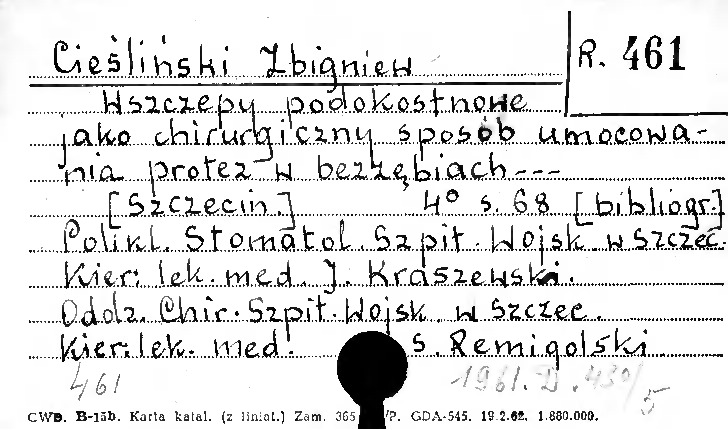 Cieśliński Zbigniew
R. 461
Wszczepy podokostnowe
jako chirurgiczny sposób umocowa-
nia protez w bezzębiach ---
[Szczecin.] 4° s. 68 [bibliogr.]
Polikl. Stomatol. Szpit. Wojsk. w Szczec.
Kier. lek. med. J. Kraszewski.
Oddz. Chir. Szpit. Wojsk. w Szczec.
Kier. lek. med. S. Remigolski
461 1961. D. 430/5
CWD. B-15b. Karta katal. (z liniat.) Zam. 365 /P. GDA-545. 19.2.62. 1.860.000.